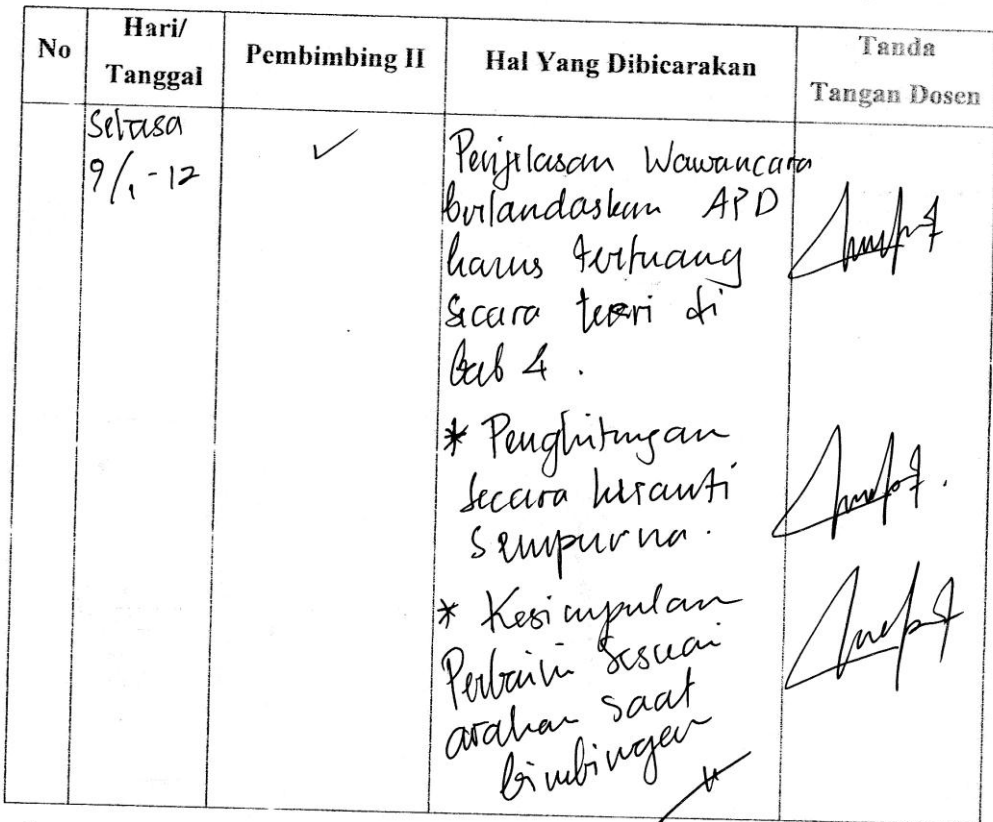 No
Hari/
Tanggal
Pembimbing II
Hal Yang Dibicarakan
Tanda
Tangan Dosen
Selasa
9/1-12
✓
Penjelasan Wawancara
berlandaskan APD
harus tertuang
secara teori di
bab 4.
* Penghitungan
secara
sempurna.
* Kesimpulan
Perbaiki sesuai
arahan saat
bimbingan